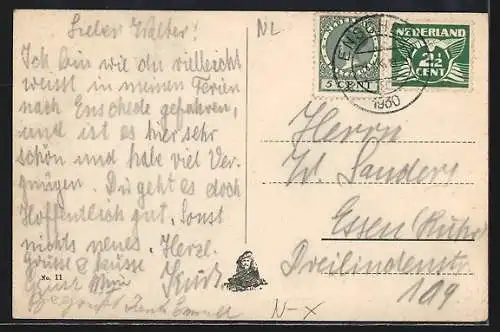 Lieber Walter!
Ich bin wie du vielleicht
weisst in meinen Ferien
nach Enschede gefahren,
und ist es hier sehr
schön und habe viel Ver-
gnügen. Dir geht es doch
Hoffentlich gut. Sonst
nichts neues. Herzl.
Grüsse & Küsse
Kurt
No. 11
NL
5 CENT
NEDERLAND
2½
CENT
1930
Herrn
W. Sanders
Essen (Ruhr)
Dreilindenstr.
109
N-X